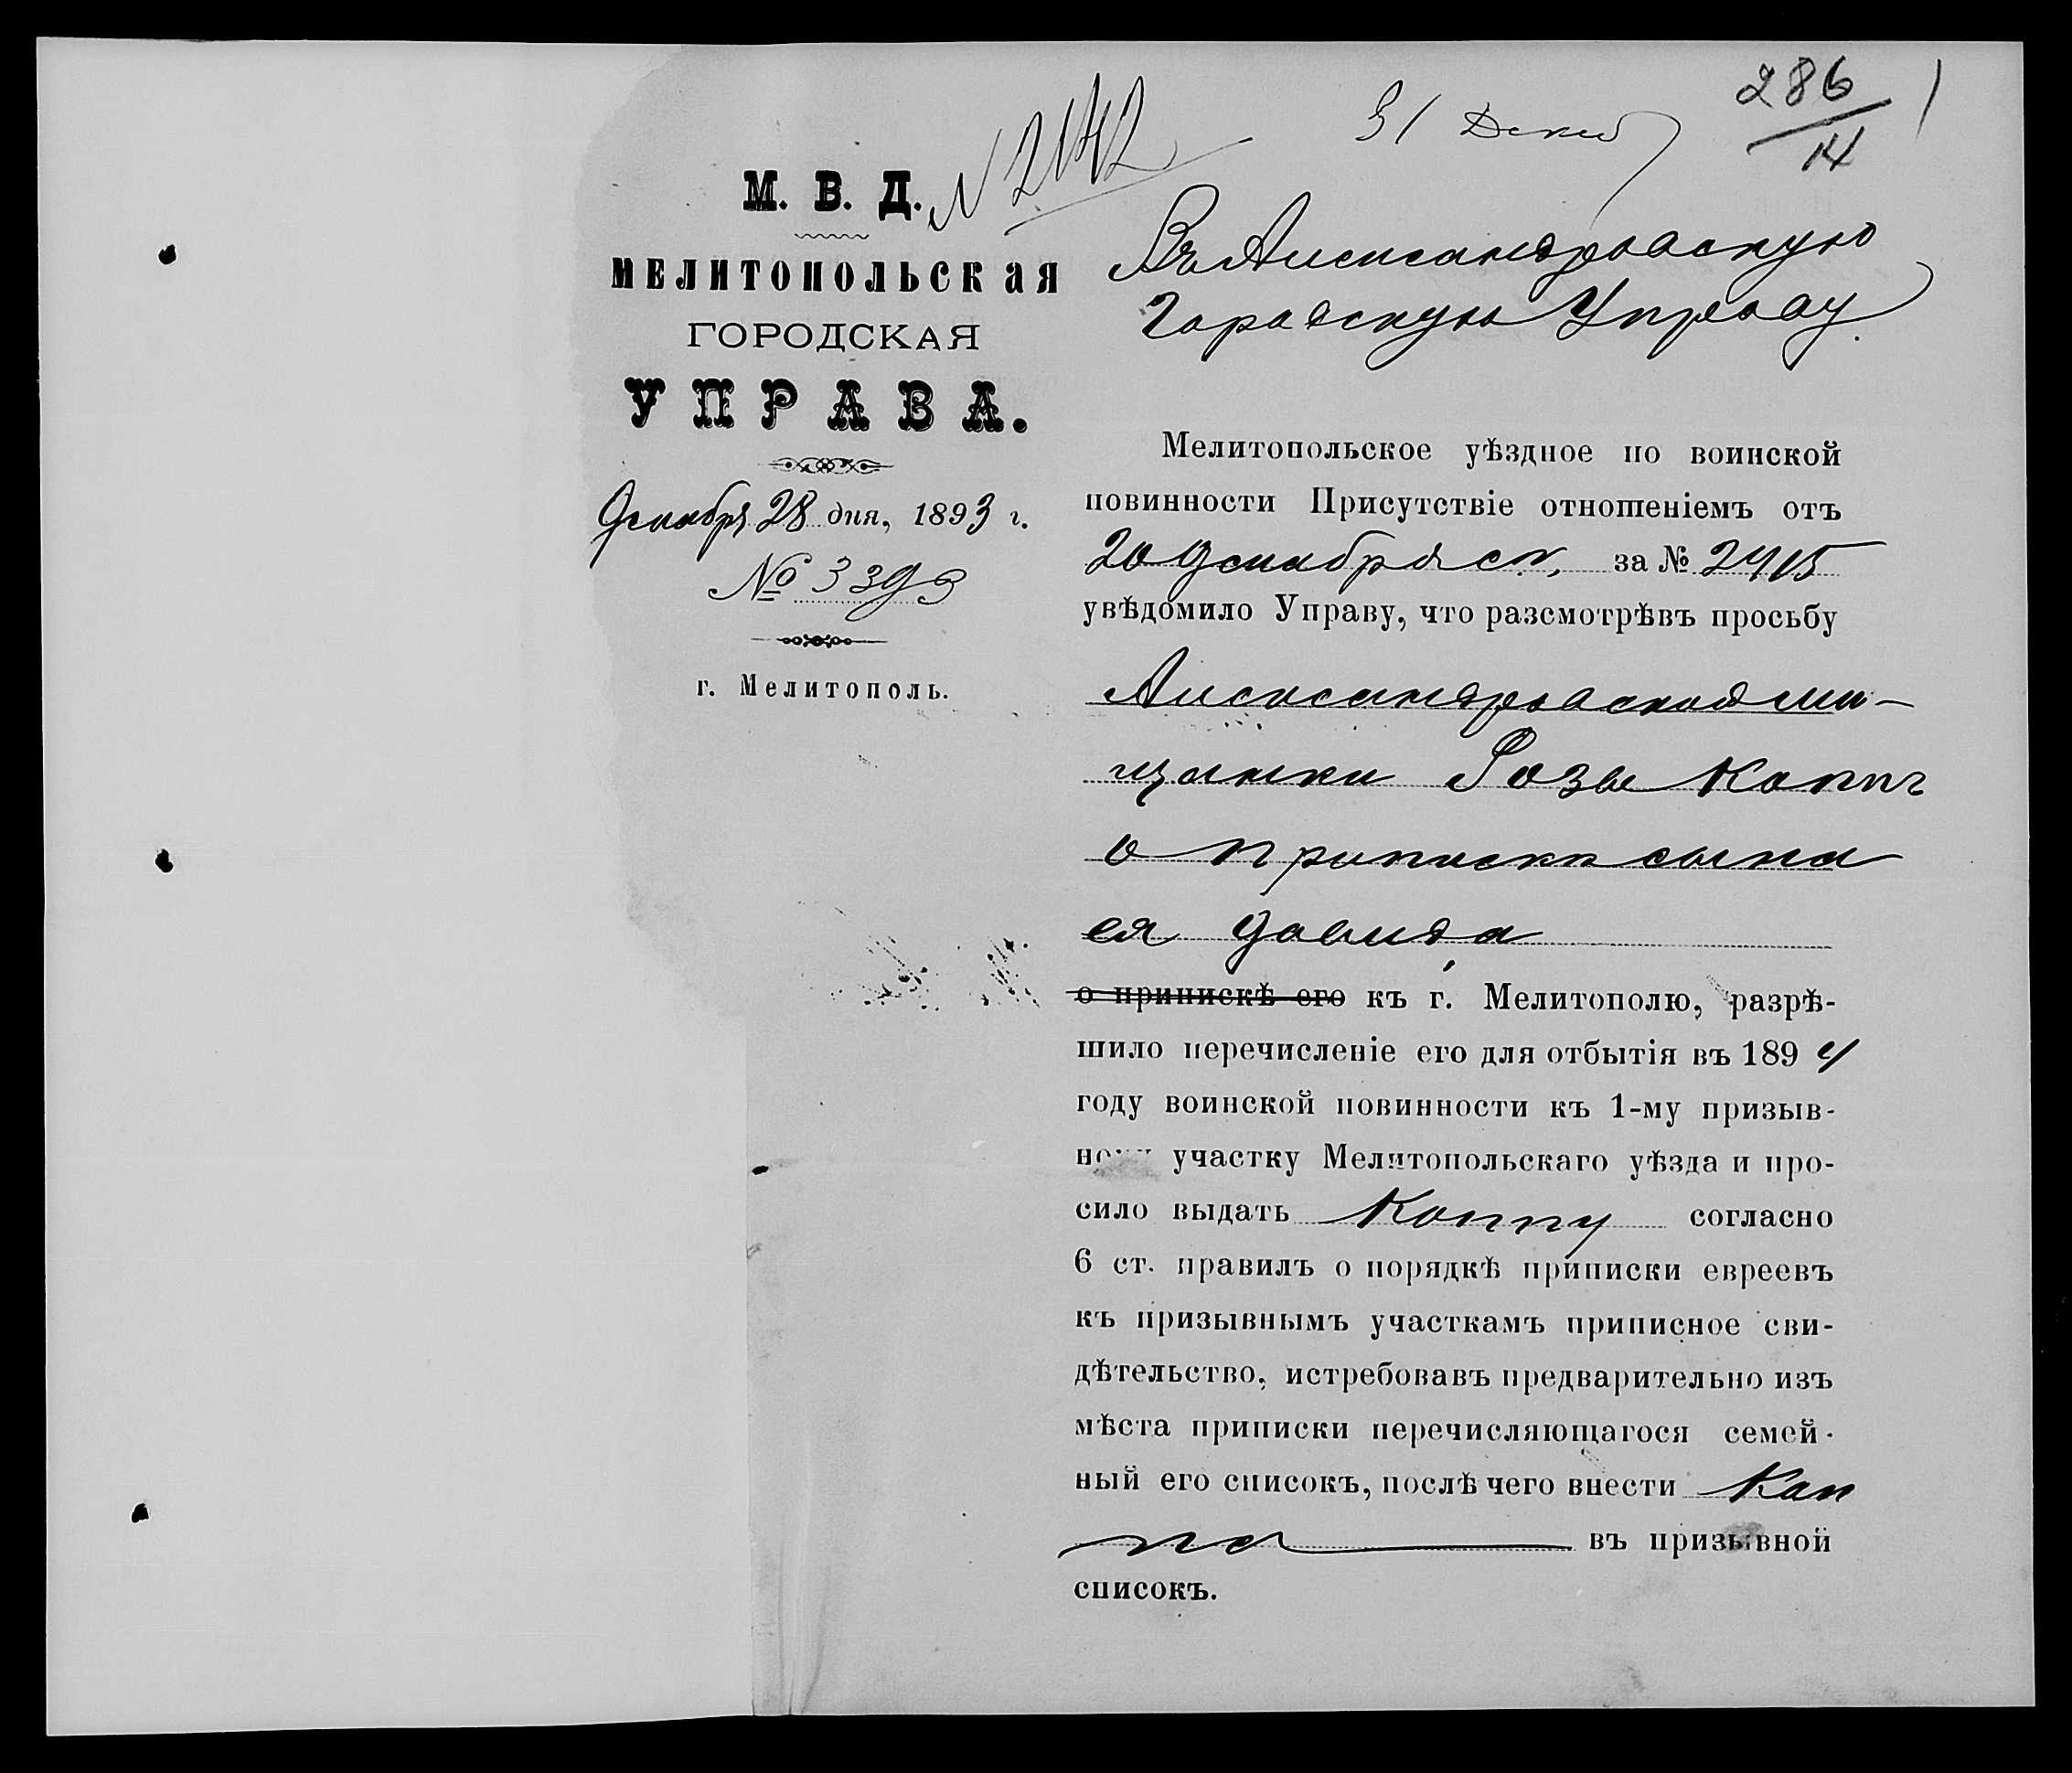 286
14
31 Декаб
N 2142
М. В. Д.
МЕЛИТОПОЛЬСКАЯ
ГОРОДСКАЯ
УПРАВА.
Декабря 28 дня, 1893 г.
№ 3393
г. Мелитополь.
Въ Александровскую
Городскую Управу.
Мелитопольское уѣздное по воинской
повинности Присутствіе отношеніемъ отъ
20 Декабря с.г., за № 2415
увѣдомило Управу, что разсмотрѣвъ просьбу
Александровской мѣ-
щанки Розы Коппъ
о припискѣ сына
ея Давида
о припискѣ его къ г. Мелитополю, разрѣ-
шило перечисленіе его для отбытія въ 1894
году воинской повинности къ 1-му призыв-
ному участку Мелитопольскаго уѣзда и про-
сило выдать Коппу согласно
6 ст. правилъ о порядкѣ приписки евреевъ
къ призывнымъ участкамъ приписное сви-
дѣтельство, истребовавъ предварительно изъ
мѣста приписки перечисляющагося семей-
ный его списокъ, послѣ чего внести Коп
па въ призывной
списокъ.